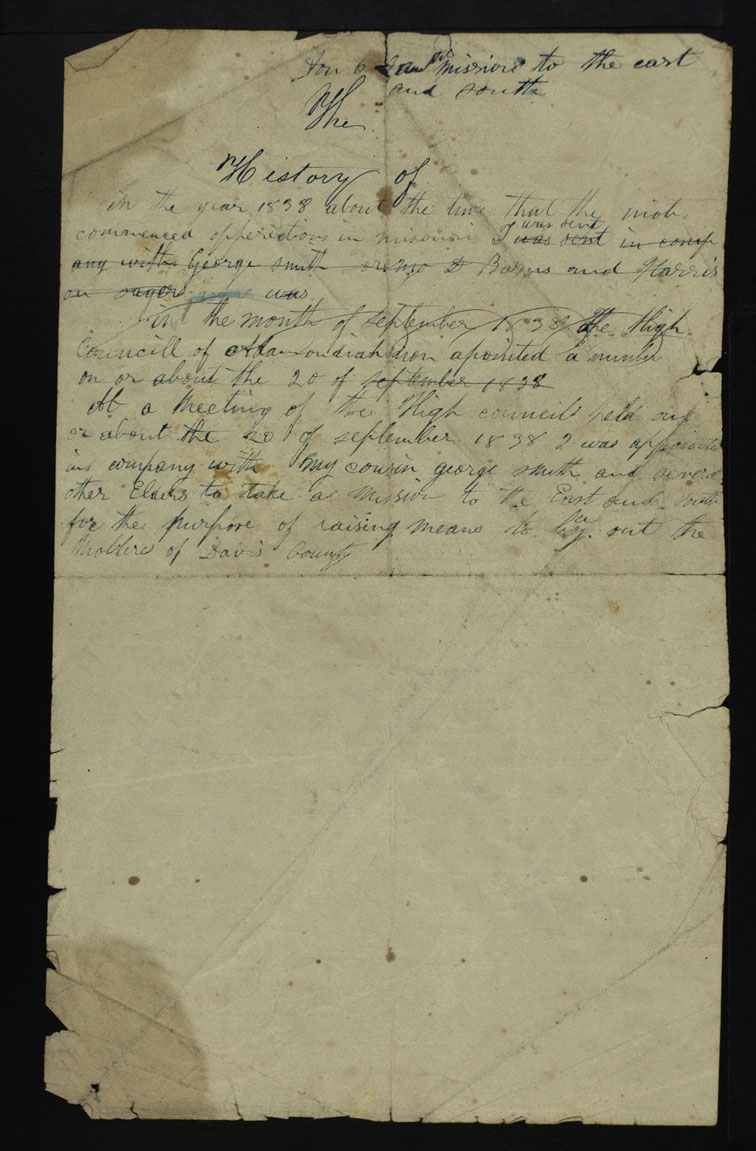 mission to the east
and south
The
History of
in the year 1838 about the time that the mob
commenced opperations in missouri I was sent was sent in comp
any with George smith Lorenzo D Barns and Harris
on sayers was
in the month of september 1838 the High
Councill of Adam ondiahmon apointed a number
on or about the 20 of september 1838
At a Meeting of the High councill held on
or about the 20 of september 1838 I was appointed
in company with my cousin george smith and several
other Elders to take a Mission to the East and south
for the purpose of raising means to buy out the
Mobbers of Davis County